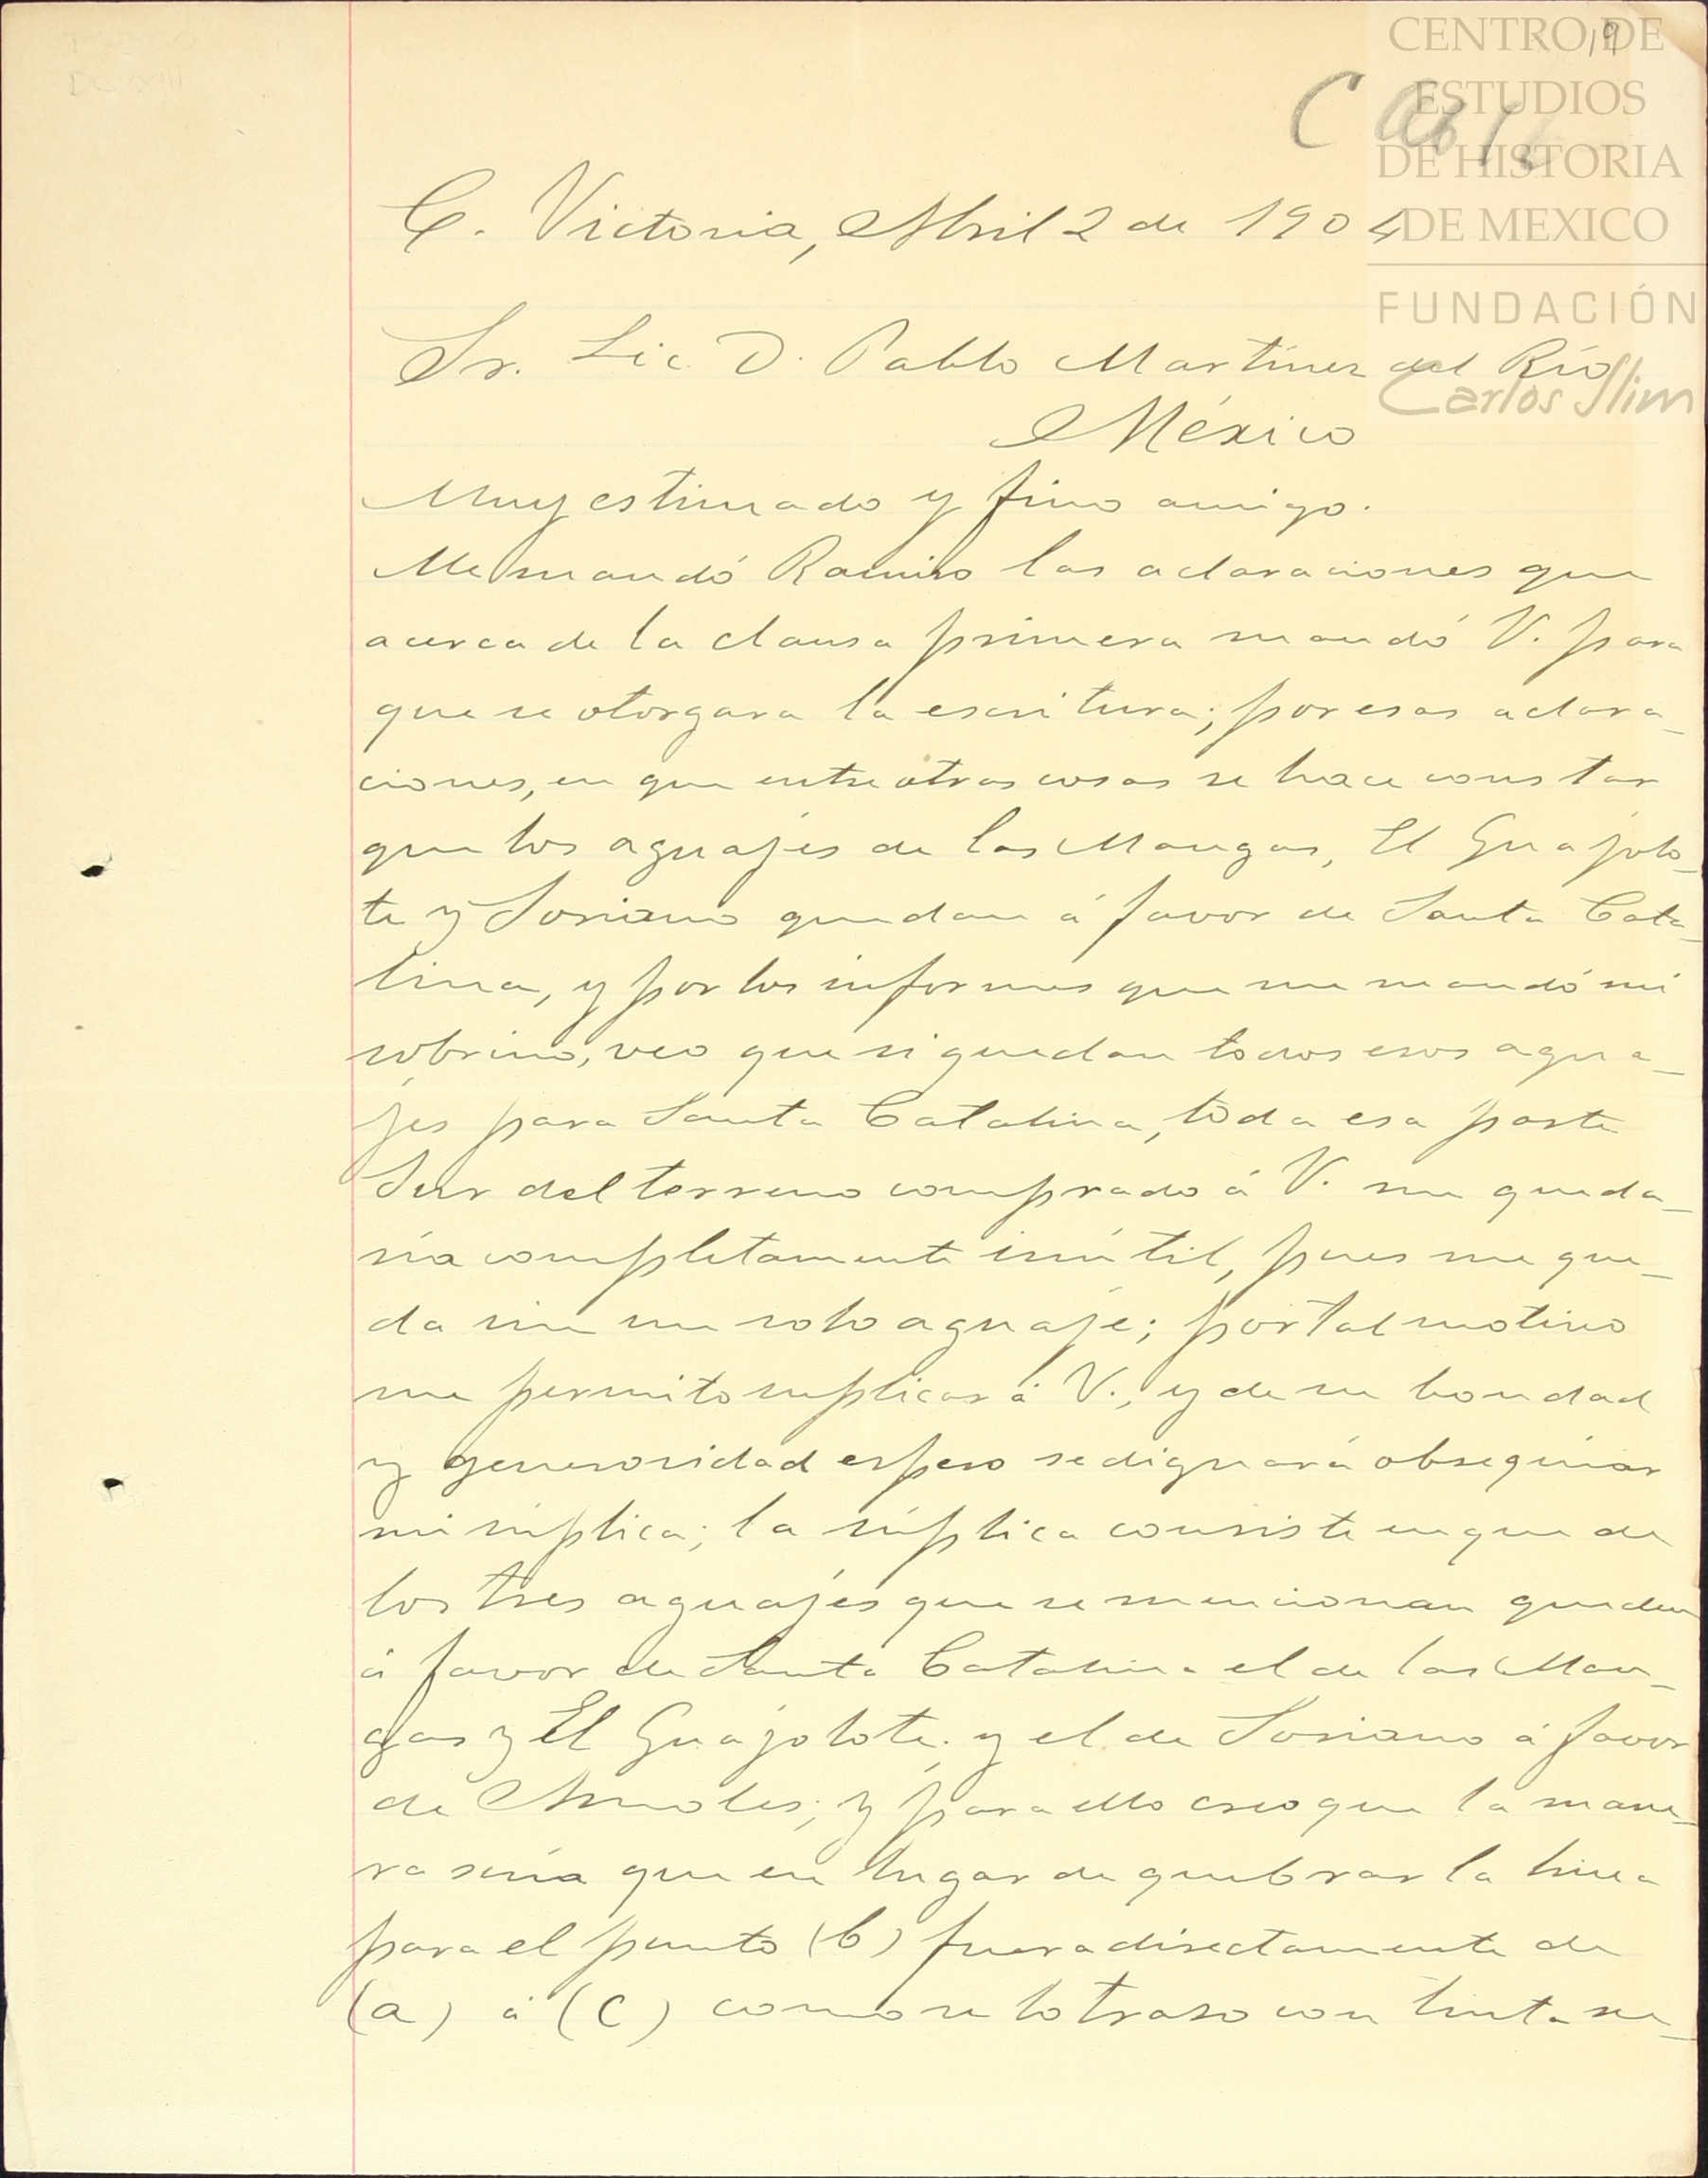 19
CENTRO DE
ESTUDIOS
DE HISTORIA
DE MEXICO
FUNDACIÓN
Carlos Slim
C
C. Victoria, Abril 2 de 1904
Sr. Lic. D. Pablo Martínez del Río
México
Muy estimado y fino amigo.
Me mandó Ramiro las aclaraciones que
acerca de la clausa primera mandó V. para
que se otorgara la escritura; por esas aclara-
ciones, en que entre otras cosas se hace constar
que los aguajes de las Mangas, El Guajolo-
te y Soriano quedan á favor de Santa Cata-
lina, y por los informes que me mandó mi
sobrino, veo que si quedan todos esos agua-
jes para Santa Catalina, toda esa parte
Sur del terreno comprado á V. me queda-
ría completamente inútil, pues me que-
da sin un solo aguaje; por tal motivo
me permito suplicar á V., y de su bondad
y generosidad espero se dignará obsequiar
mi súplica; la súplica consiste en que de
los tres aguajes que se mencionan queden
á favor de Santa Catalina el de las Man-
gas y El Guajolote, y el de Soriano á favor
de Amoles; y para ello creo que la mane-
ra sería que en lugar de quebrar la linea
para el punto (b) fuera directamente de
(a) á (c) como se lo traso con tinta ne-